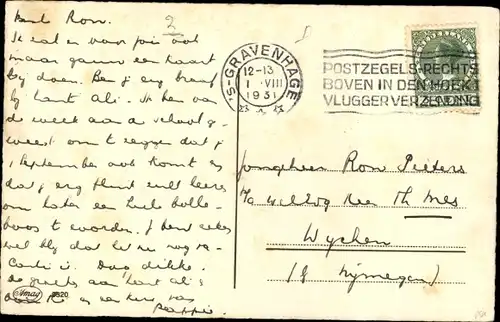 Beste Ron.
2
Ik zal er voor jou ook
maar gauw een kaart
bij doen. Ben je erg bruin
bij tante Ali. Ik ben van
de week aan de school ge-
weest om te zeggen dat je
1 September ook komt en
dat je erg flink zult leeren
om later een heele bolle-
boos te worden. Je bent zeker
wel blij dat het nu nog va-
cantie is. Dag dikke.
de groeten aan tante Ali
en een kus van
Pappie.
Amag 3520
'S-GRAVENHAGE
12-13
1 VIII
1931
POSTZEGELS RECHTS
BOVEN IN DEN HOEK!
VLUGGER VERZENDING
Jongeheer Ron Pieters
p/a Th Mes
Wychen
(bij Nijmegen)